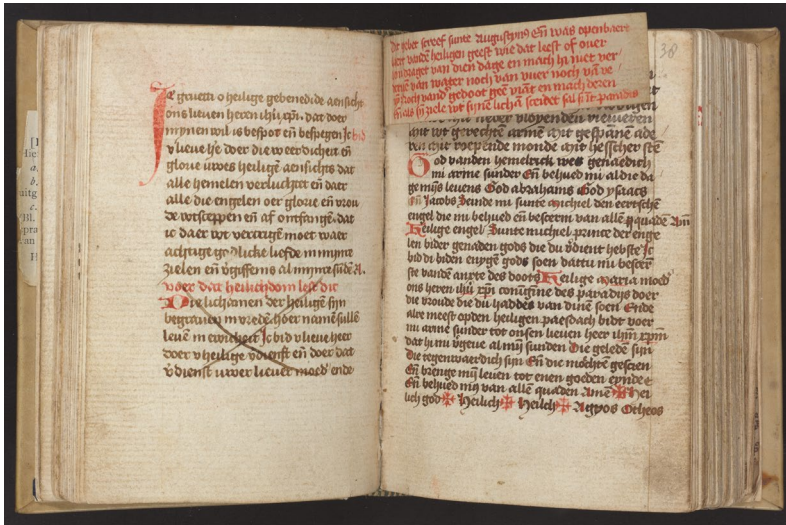 Ic gruetti o heilige gebenedide aensicht
ons lieuen heren ihū xp̄i. dat doer
mynen wil is bespot eñ bespegen Ic bid
v lieue he doer die weerdicheit eñ
glorie uwes heilige aensichts dat
alle hemelen verluchtet eñ daer
alle die engelen oer glorie eñ vrou
de vutsceppen eñ af ontfangē. dat
ic daer wt vercrigē moet waer
achtige godlicke liefde in mynre
zielen eñ v̄giffenis al mynre sūdē A.
voer dat heilichdom lese dit
Die lichamen der heiligē syn
begrauen in vredē hoer namē sullē
leuē in ewicheit Ic bid v lieue heer
doer v heilige v̄dienst eñ doer dat
v̄dienst uwer lieuer moed' ende
Dit gebet screef sunte Augustynus Eñ was openbaert
vandē heiligen geest wie dat leest of ouer
van dien dage en mach hi niet ver
van water noch van vuer noch vā ve
noch vand gedoot gee viāt en mach deren
Eñ als sȳ ziele wt synē lichā sceidet sal si īt paradis
38
vloyenden
armē
roepende monde hesscher stē
God vanden hemelrick wes genaedich
mi arme sunder Eñ behued mi al die da
ge mijs leuens God abrahams God ysaacs
eñ Jacobs Seinde mi sunte Michiel den eertschē
engel die mi behued eñ bescerm van allē quadē Am̄
Heilige engel Sunte michiel prince der enge
len bider genaden gods die du v̄dient hebste Ic
bid di biden enygē gods soen dattu mi bescer
ste vandē anxte des doots Heilige maria moed'
ons heren ihū xp̄i coninginne des paradijs doer
die vroude die du haddes van dinē soen Ende
alre meest opden heiligen paesdach bidt voer
mi armē sunder tot onsen lieuen heer ihm̄ xpm̄
dat hi mi v̄geue al mij sunden Die geledē sijn
die tegenwaerdich sijn Eñ die mochtē gescien
Eñ brenge mij leuen tot enen goeden eynde
Eñ behued mij van allē quaden Amē Hei
lich god Heilich Heilch Agyos Otheos